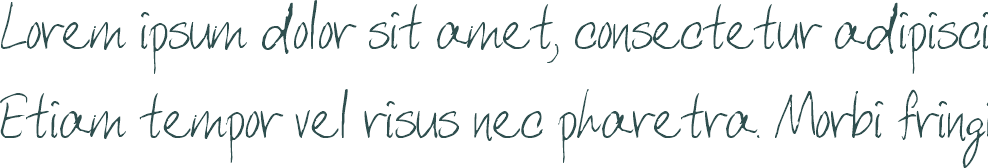 Lorem ipsum dolor sit amet, consectetur adipisci
Etiam tempor vel risus nec pharetra. Morbi fringi